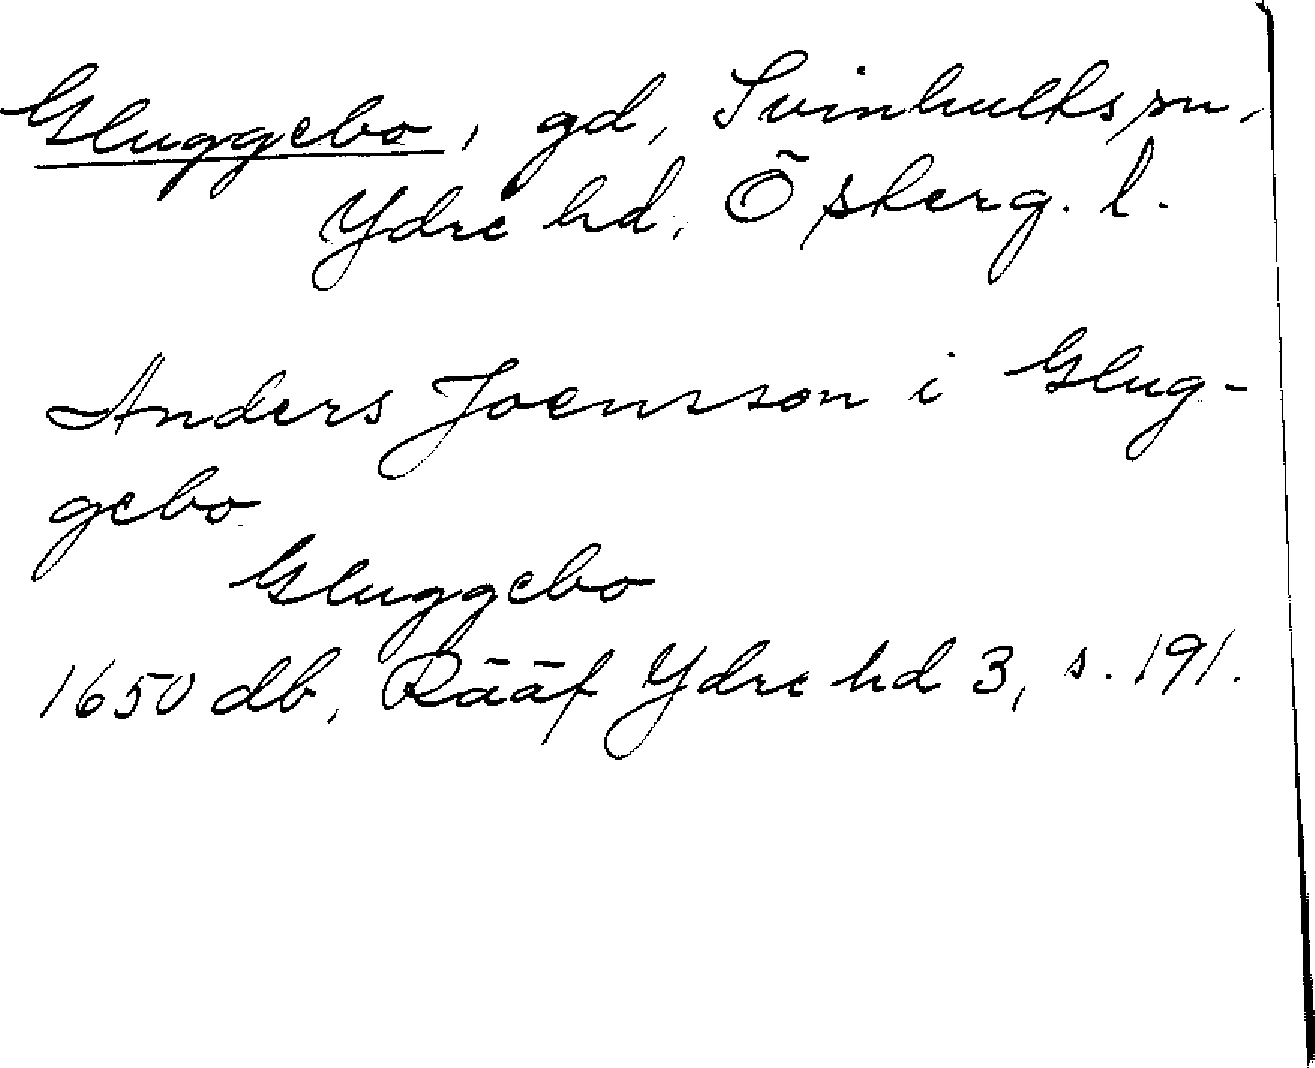 Gluggebo, gd, Svinhults sn,
Ydre hd, Österg. l.
Anders Joensson i Glug-
gebo
Gluggebo
1650 db, Rääf Ydre hd 3, s. 191.